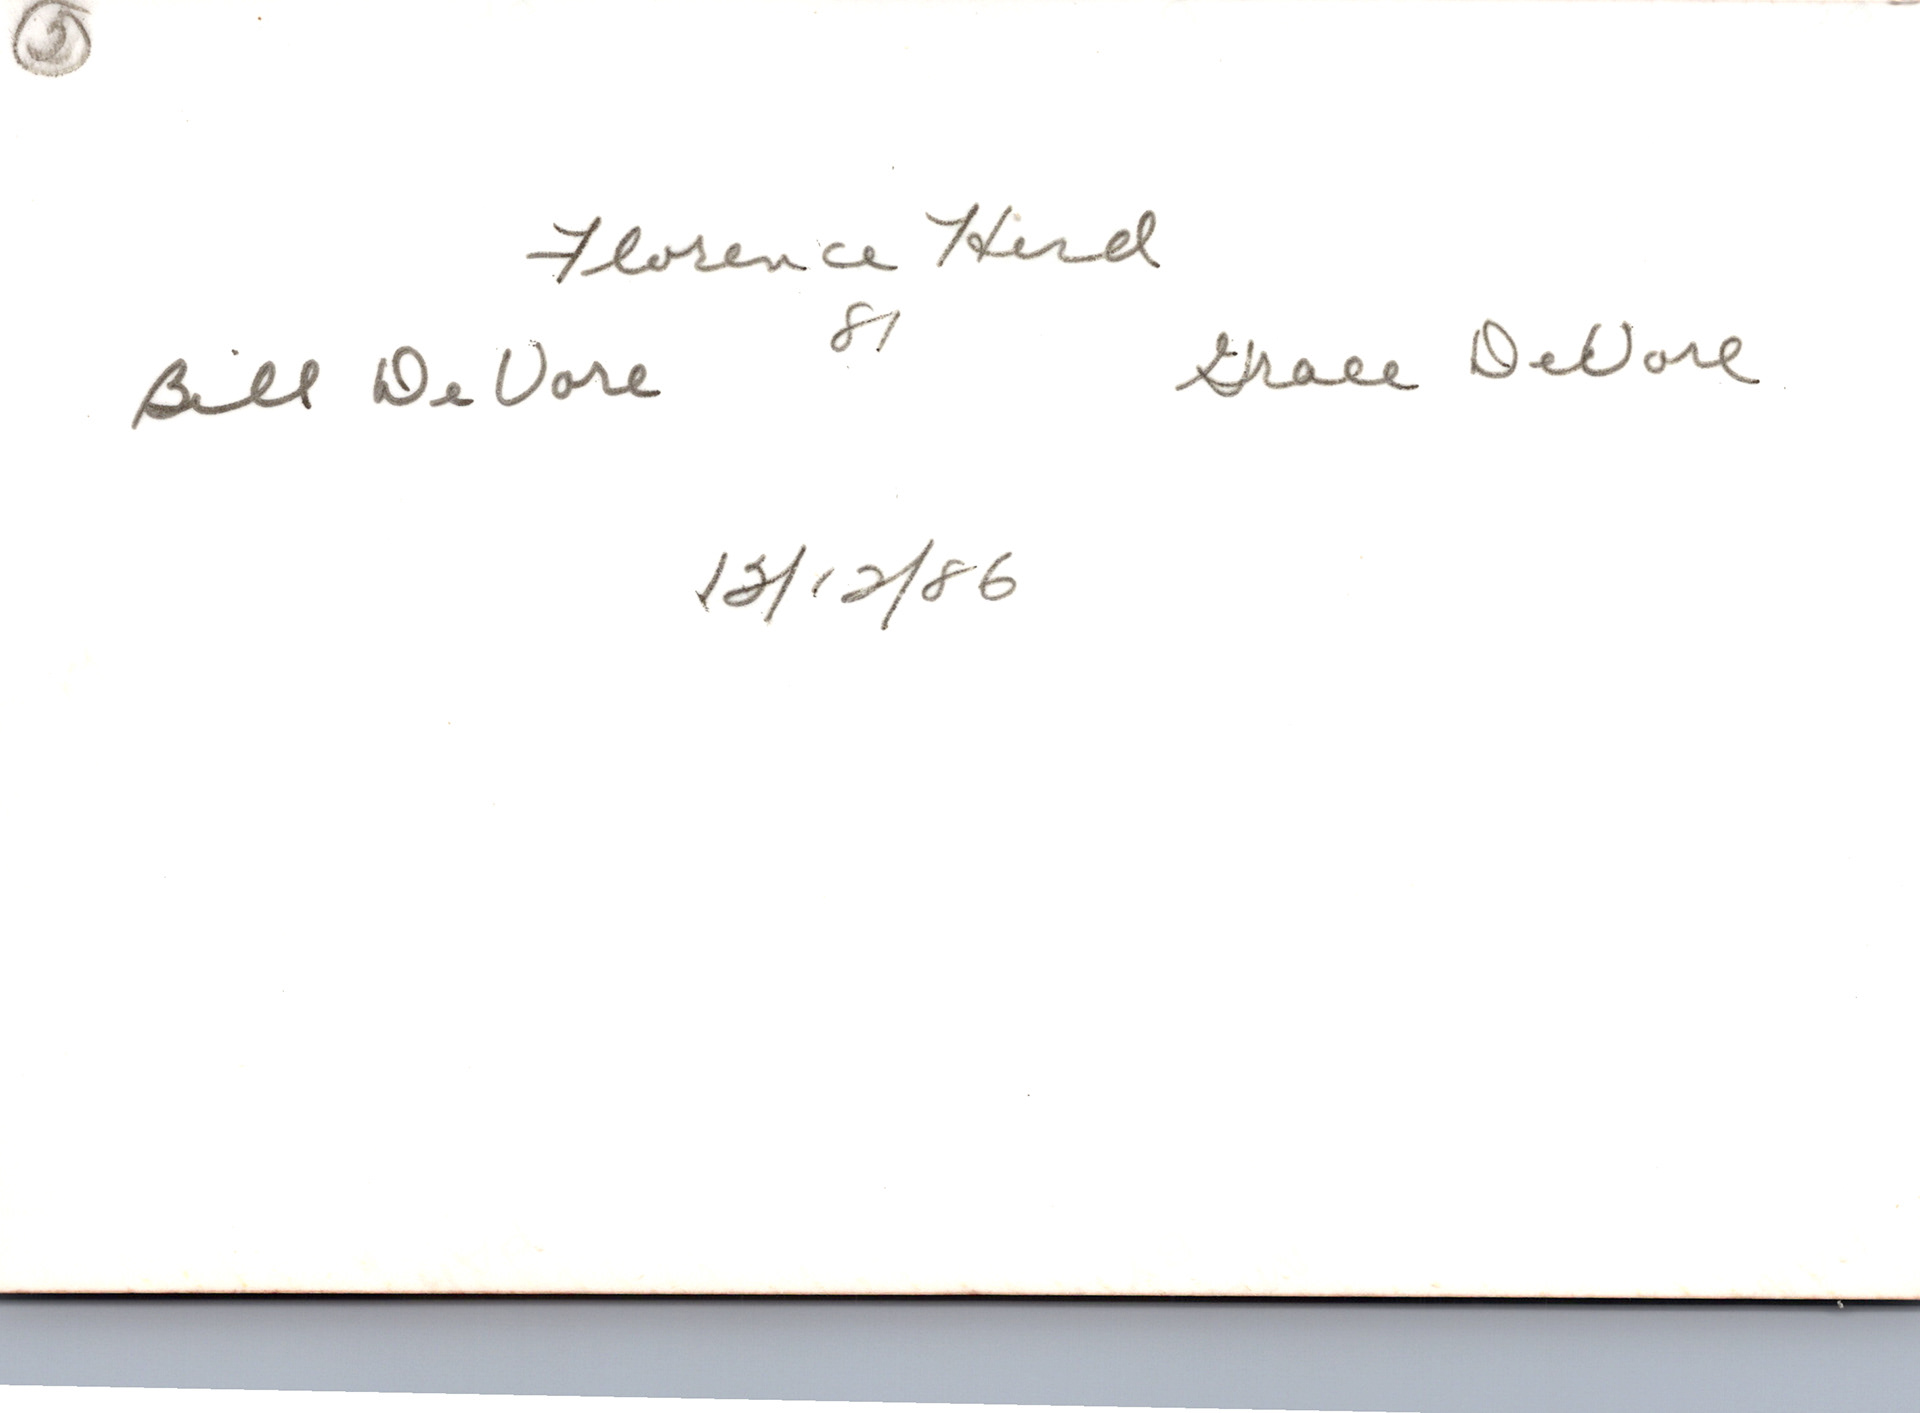 5
Florence Hird
81
Bill DeVore Grace DeVore
13/12/86